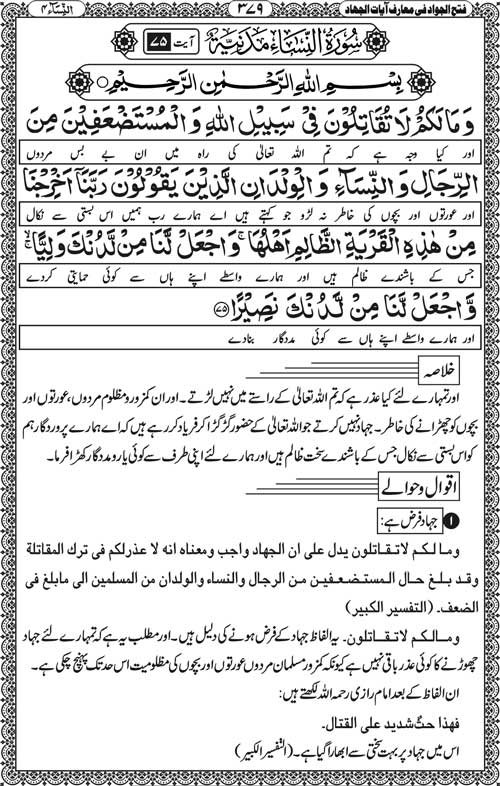 فتح الجواد فی معارف آیات الجهاد ۳۷۹ النساء ۴
سُوْرَةُ النِّسَاءِ مَدَنِيَّةٌ آیت ۷۵
بِسْمِ اللهِ الرَّحْمٰنِ الرَّحِيْمِ
وَمَالَكُمْ لَا تُقَاتِلُوْنَ فِيْ سَبِيْلِ اللهِ وَالْمُسْتَضْعَفِيْنَ مِنَ
اور کیا وجہ ہے کہ تم اللہ تعالیٰ کی راہ میں ان بے بس مردوں
الرِّجَالِ وَالنِّسَآءِ وَالْوِلْدَانِ الَّذِيْنَ يَقُوْلُوْنَ رَبَّنَآ اَخْرِجْنَا
اور عورتوں اور بچوں کی خاطر نہ لڑو جو کہتے ہیں اے ہمارے رب ہمیں اس بستی سے نکال
مِنْ هٰذِهِ الْقَرْيَةِ الظَّالِمِ اَهْلُهَا ۚ وَاجْعَلْ لَّنَا مِنْ لَّدُنْكَ وَلِيًّا ۙ
جس کے باشندے ظالم ہیں اور ہمارے واسطے اپنے ہاں سے کوئی حمایتی کردے
وَّاجْعَلْ لَّنَا مِنْ لَّدُنْكَ نَصِيْرًا ۷۵
اور ہمارے واسطے اپنے ہاں سے کوئی مددگار بنادے
خلاصہ
اور تمہارے لئے کیا عذر ہے کہ تم اللہ تعالیٰ کے راستے میں نہیں لڑتے۔ اور ان کمزور و مظلوم مردوں، عورتوں اور
بچوں کو چھڑانے کی خاطر۔ جہاد نہیں کرتے جو اللہ تعالیٰ کے حضور گڑگڑا کر فریاد کر رہے ہیں کہ اے ہمارے پروردگار ہم
کو اس بستی سے نکال جس کے باشندے سخت ظالم ہیں اور ہمارے لئے اپنی طرف سے کوئی یار و مددگار کھڑا فرما۔
اقوال و حوالے
۱ جہاد فرض ہے:
ومالکم لا تقاتلون یدل علی ان الجهاد واجب ومعناه انه لا عذرلکم فی ترك المقاتلة
وقد بلغ حال المستضعفین من الرجال والنساء والولدان من المسلمین الی مابلغ فی
الضعف۔ (التفسیر الکبیر)
ومالکم لاتقاتلون۔ یہ الفاظ جہاد کے فرض ہونے کی دلیل ہیں۔ اور مطلب یہ ہے کہ تمہارے لئے جہاد
چھوڑنے کا کوئی عذر باقی نہیں ہے کیونکہ کمزور مسلمان مردوں عورتوں اور بچوں کی مظلومیت اس حد تک پہنچ چکی ہے۔
ان الفاظ کے بعد امام رازی رحمہ اللہ لکھتے ہیں:
فهذا حثٌ شدید علی القتال۔
اس میں جہاد پر بہت سختی سے ابھارا گیا ہے۔ (التفسیر الکبیر)